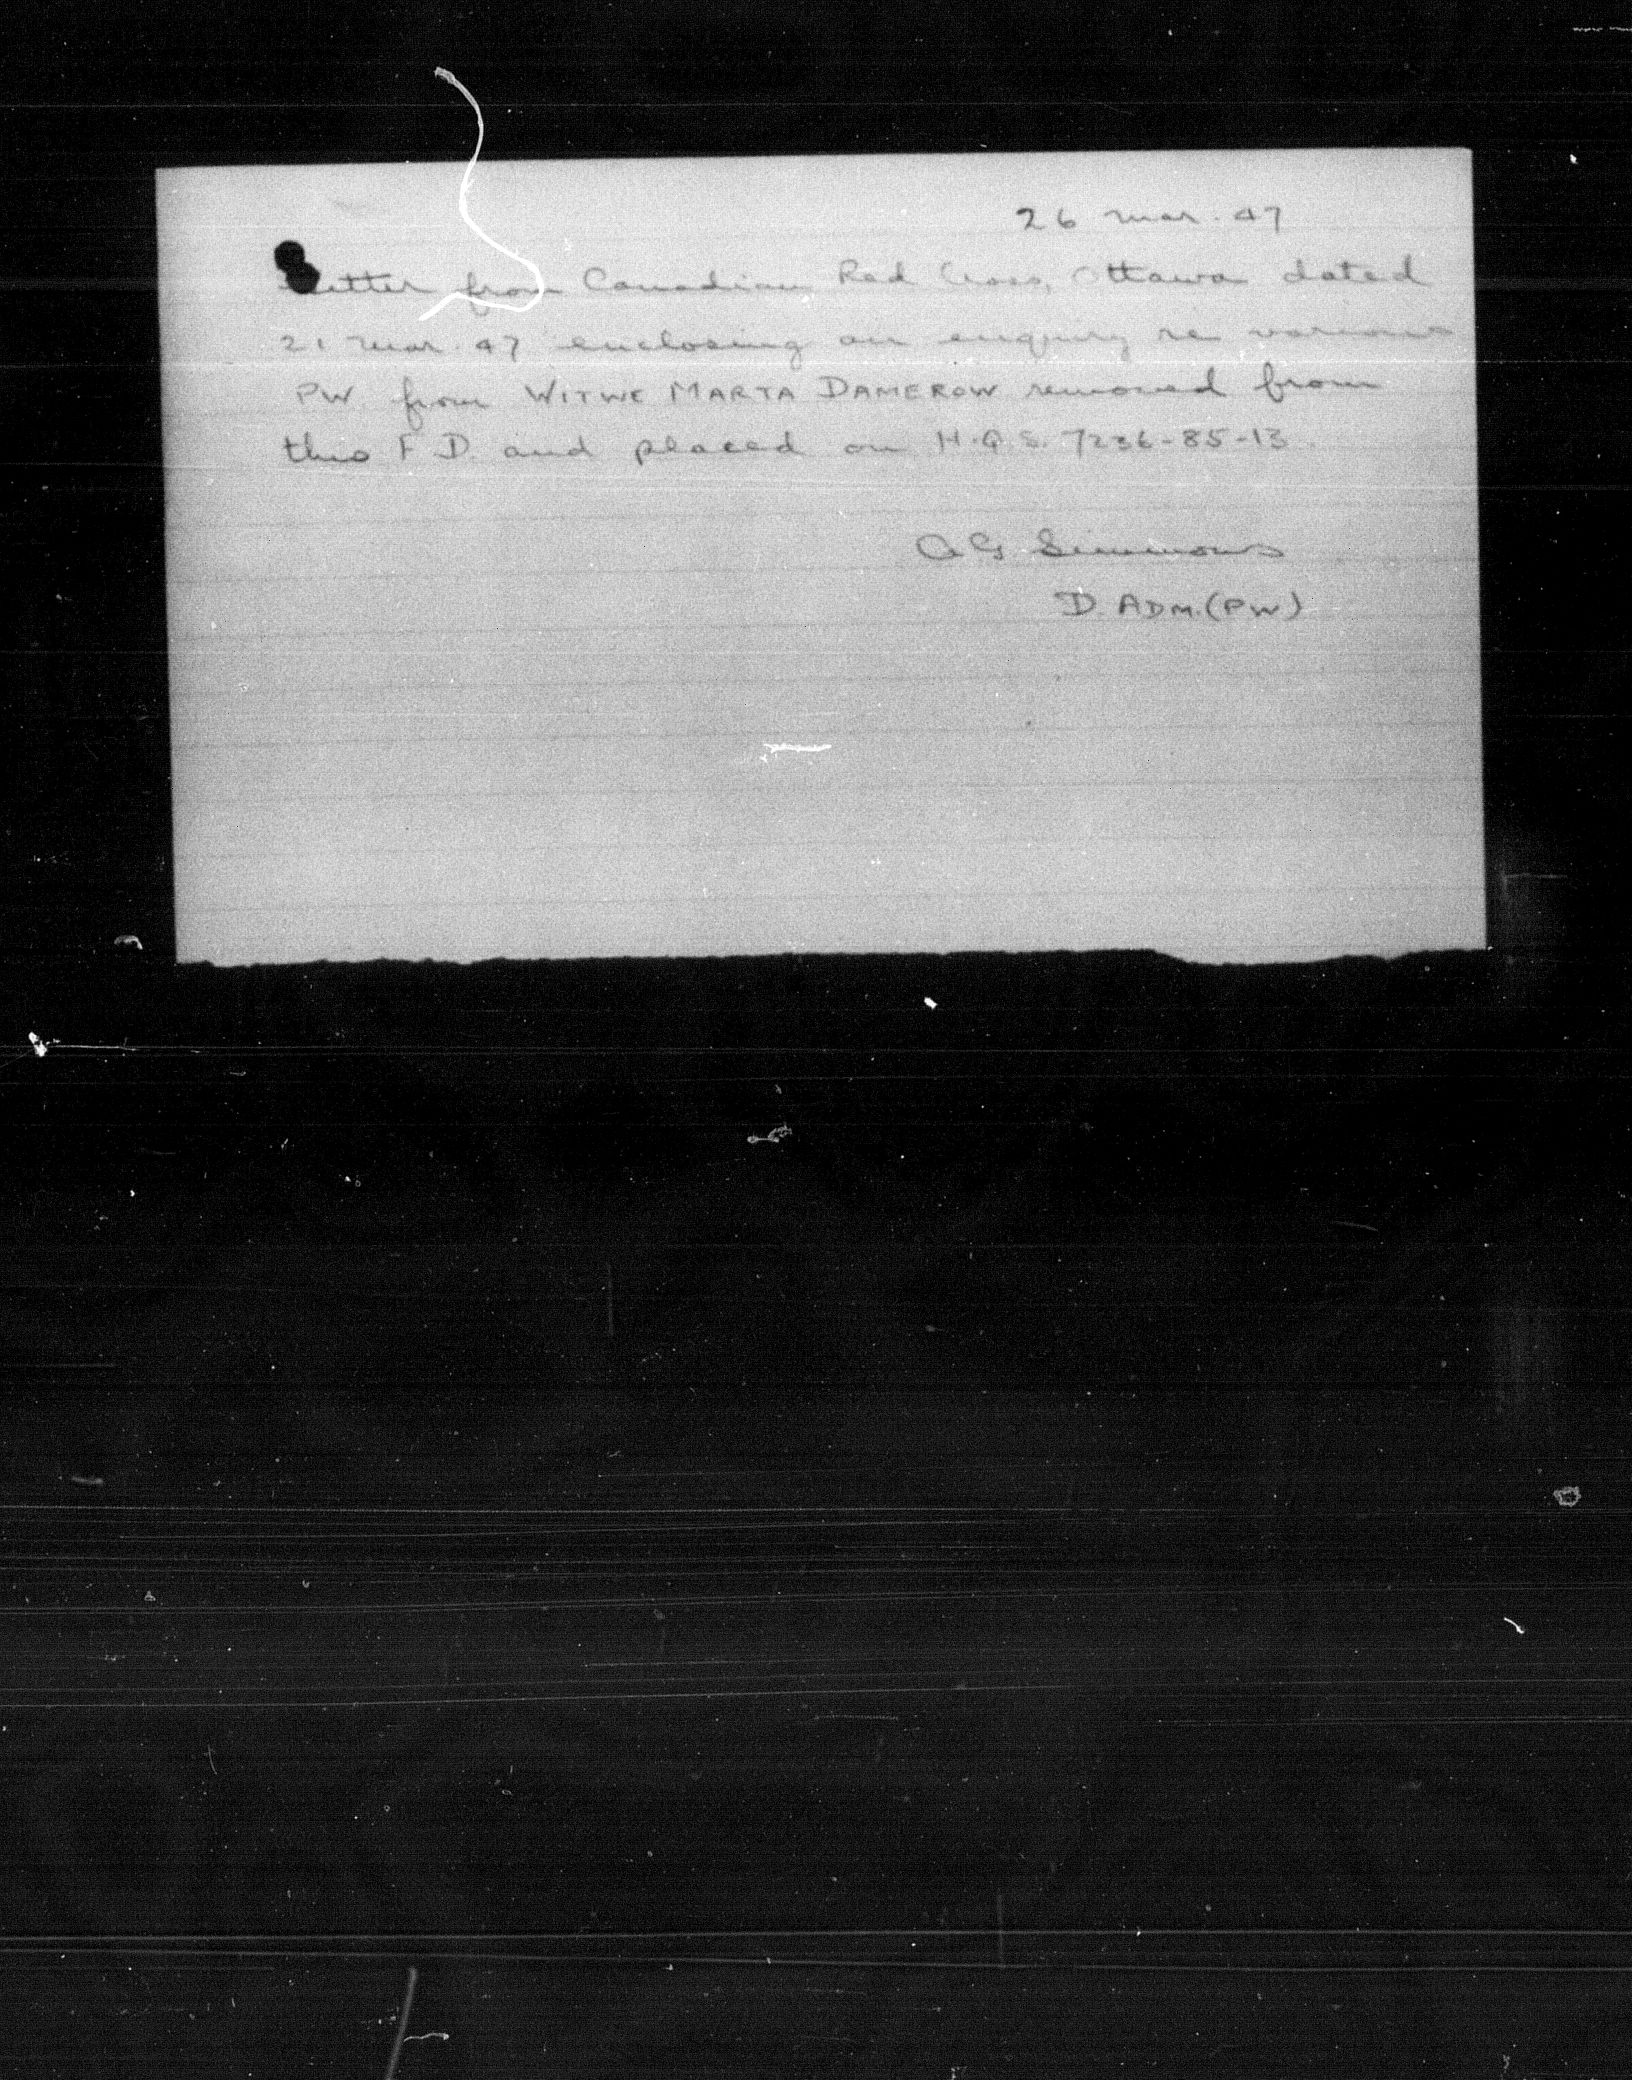 26 Mar. 47
Letter from Canadian Red Cross, Ottawa dated
21 Mar. 47 enclosing an enquiry re various
PW. from WITWE MARTA DAMEROW removed from
this F.D. and placed on H.Q.S. 7236-85-13.
AG Simmons
D. ADM.(PW)